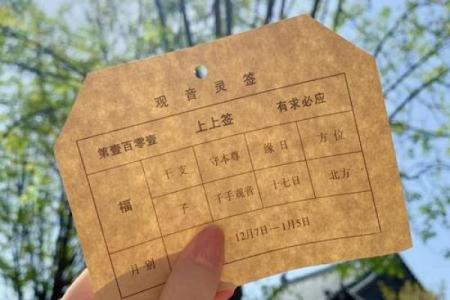 观音灵签
第壹百零壹 上上签 有求必应
福 干支 守本尊 缘日 方位
子 千手观音 十七日 北方
月别 12月7日—1月5日